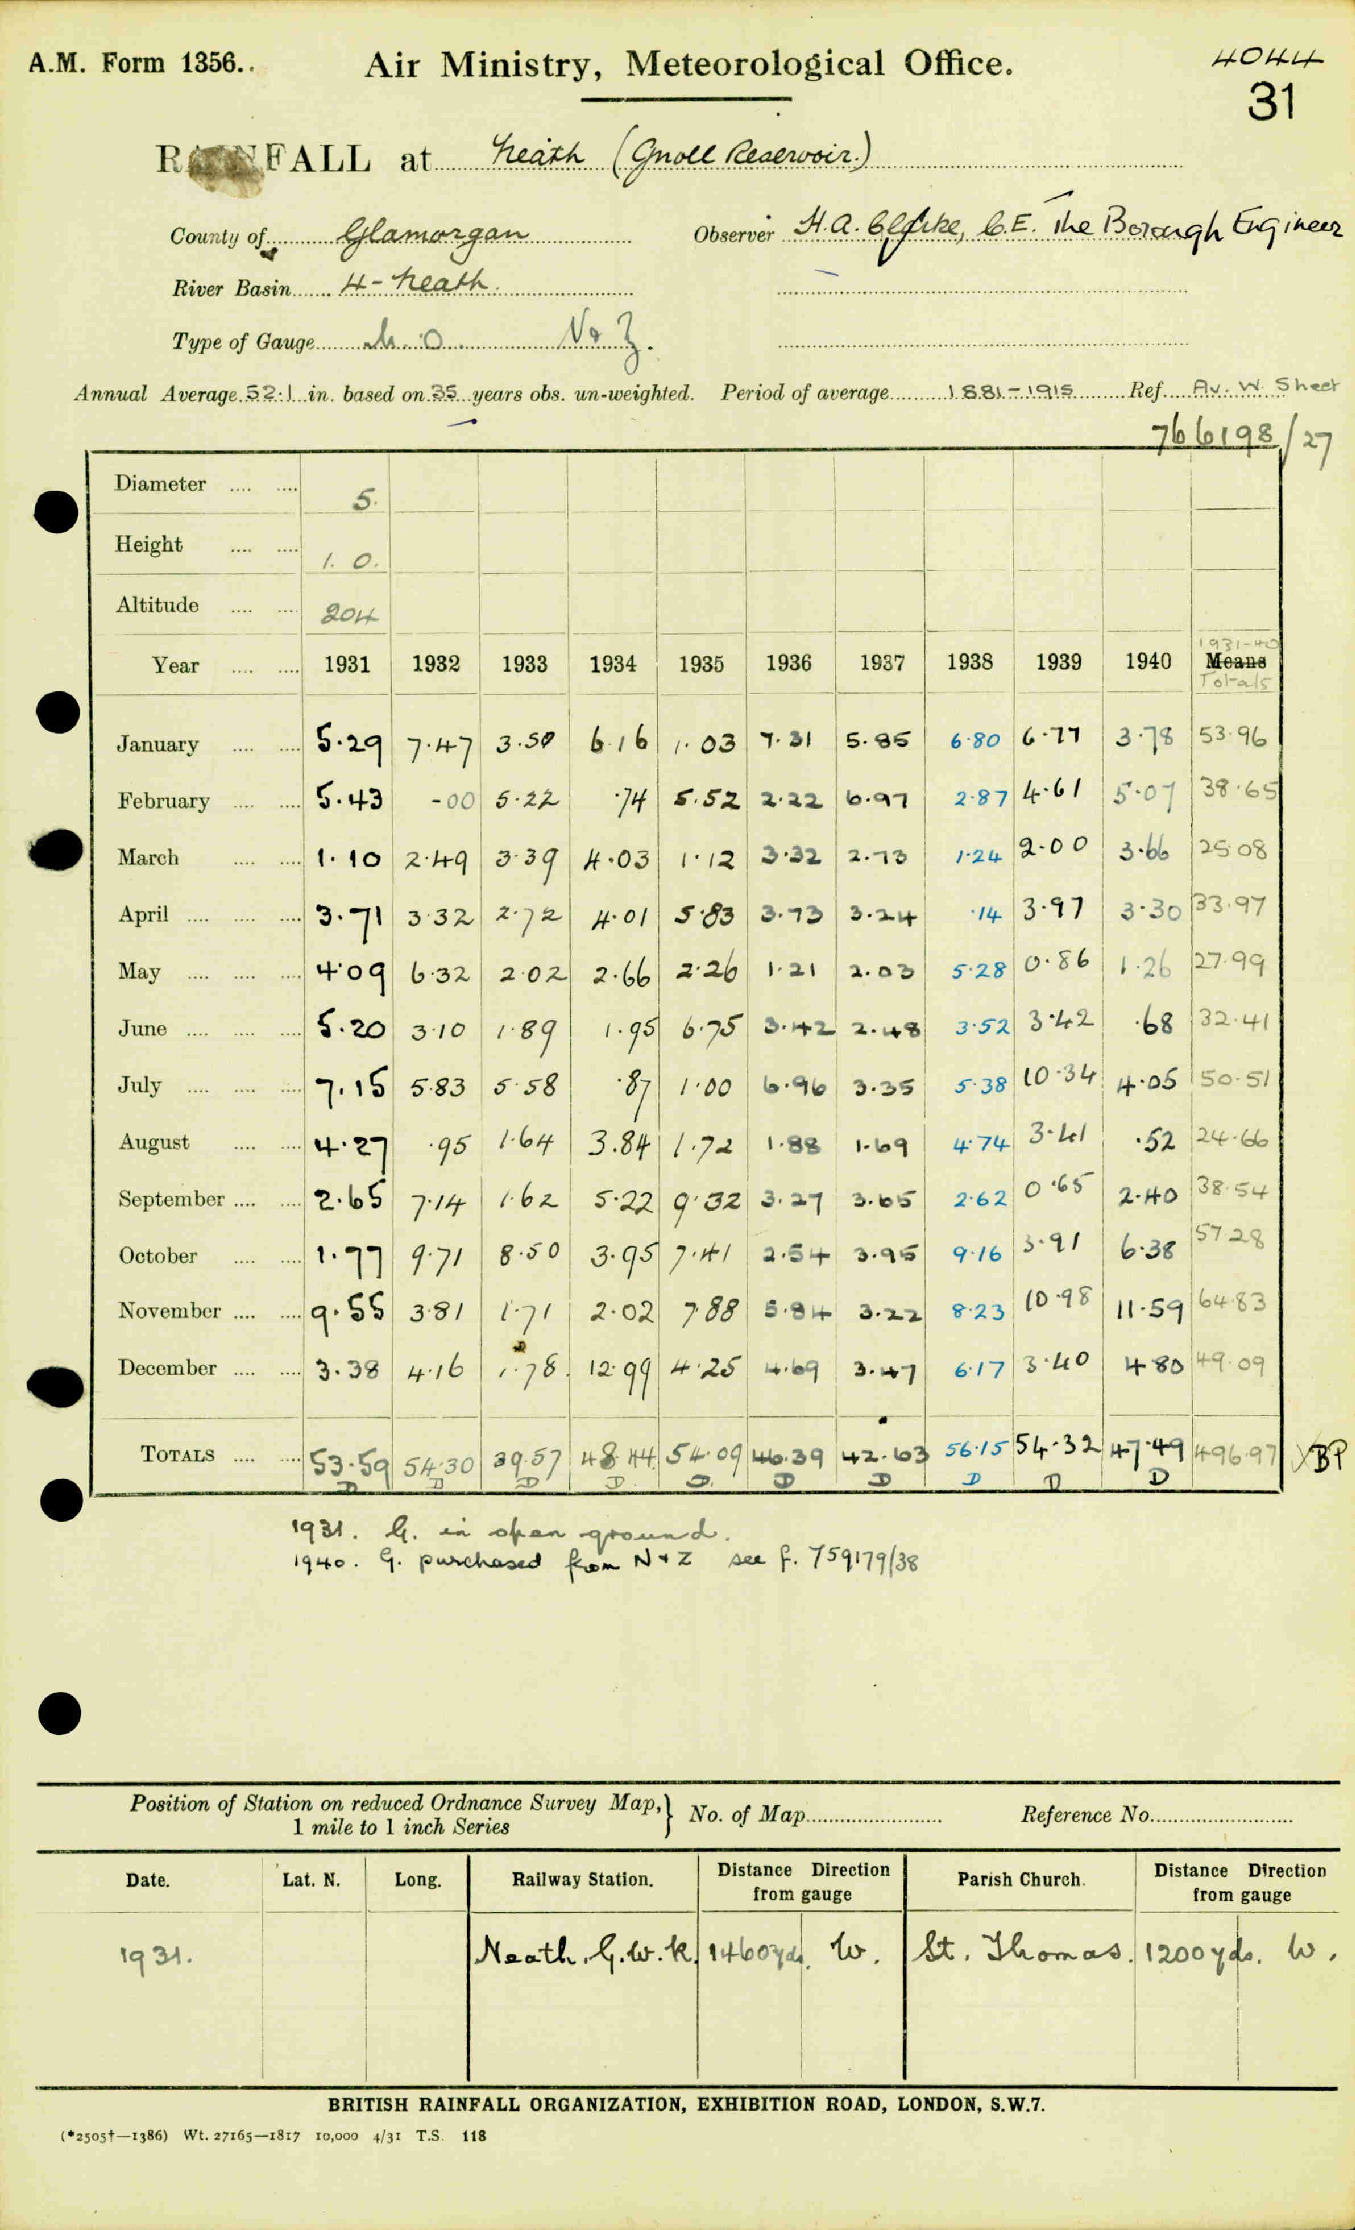 A.M. Form 1356.. Air Ministry, Meteorological Office. 4044
31
RAINFALL at Neath (Gnoll Reservoir.)
County of Glamorgan Observer H.A. Clarke, C.E. The Borough Engineer
River Basin 4 - Neath.
Type of Gauge M.O. N & Z.
Annual Average 52.1 in. based on 35 years obs. un-weighted. Period of average 1881-1915 Ref. Av. W. Sheet
766198/27
Diameter .... .... 5.
Height .... .... 1. 0.
Altitude .... .... 204
1931-40
Year .... .... 1931 1932 1933 1934 1935 1936 1937 1938 1939 1940 Means
Totals
January .... .... 5.29 7.47 3.50 6.16 1.03 7.31 5.85 6.80 6.77 3.78 53.96
February .... .... 5.43 -00 5.22 .74 5.52 2.22 6.97 2.87 4.61 5.07 38.65
March .... .... 1.10 2.49 3.39 4.03 1.12 3.32 2.73 1.24 2.00 3.66 25.08
April .... .... .... 3.71 3.32 2.72 4.01 5.83 3.73 3.24 .14 3.97 3.30 33.97
May .... .... .... 4.09 6.32 2.02 2.66 2.26 1.21 2.03 5.28 0.86 1.26 27.99
June .... .... .... 5.20 3.10 1.89 1.95 6.75 3.42 2.48 3.52 3.42 .68 32.41
July .... .... .... 7.15 5.83 5.58 .87 1.00 6.96 3.35 5.38 10.34 4.05 50.51
August .... .... 4.27 .95 1.64 3.84 1.72 1.88 1.69 4.74 3.41 .52 24.66
September .... .... 2.65 7.14 1.62 5.22 9.32 3.27 3.65 2.62 0.65 2.40 38.54
October .... .... 1.77 9.71 8.50 3.95 7.41 2.54 3.95 9.16 3.91 6.38 57.28
November .... .... 9.55 3.81 1.71 2.02 7.88 5.84 3.22 8.23 10.98 11.59 64.83
December .... .... 3.38 4.16 1.78 12.99 4.25 4.69 3.47 6.17 3.40 4.80 49.09
TOTALS .... .... 53.59 54.30 39.57 48.44 54.09 46.39 42.63 56.15 54.32 47.49 496.97 BP
D D D D D D D D D D
1931. G. in open ground.
1940. G. purchased from N + Z see f. 759179/38
Position of Station on reduced Ordnance Survey Map,} No. of Map Reference No.
1 mile to 1 inch Series
Date. Lat. N. Long. Railway Station. Distance Direction from gauge Parish Church. Distance Direction from gauge
1931. Neath. G.W.R. 1460 yds. W. St. Thomas. 1200 yds. W.
BRITISH RAINFALL ORGANIZATION, EXHIBITION ROAD, LONDON, S.W.7.
(*2505†—1386) Wt. 27165—1817 10,000 4/31 T.S. 118